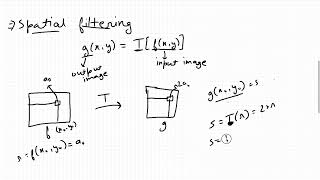 ⇒ Spatial filtering
g(x,y) = T[f(x,y)]
output image
input image
a₀
T
2a₀
f(x₀,y₀)
g
r = f(x₀,y₀) = a₀
g(x₀,y₀) = s
s = T(r) = 2×r
s =